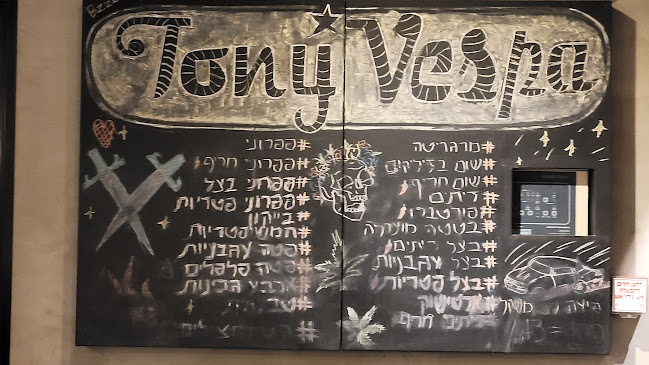 Bzzz
Tony Vespa
#מרגריטה
#שום בזיליקום
#שום חריף
#זיתים
#פורטבלו
#בטטה מוצרלה
#בצל זיתים
#בצל עגבניות
#בצל פטריות
#ארטישוק
חריף
#פפרוני
#פפרוני חריף
#פפרוני בצל
#פפרוני פטריות
#בייקון
#חמש פטריות
#פטה עגבניות
#פטה פלפלים
#ארבע גבינות
#טבעוני
פיצה
משקל